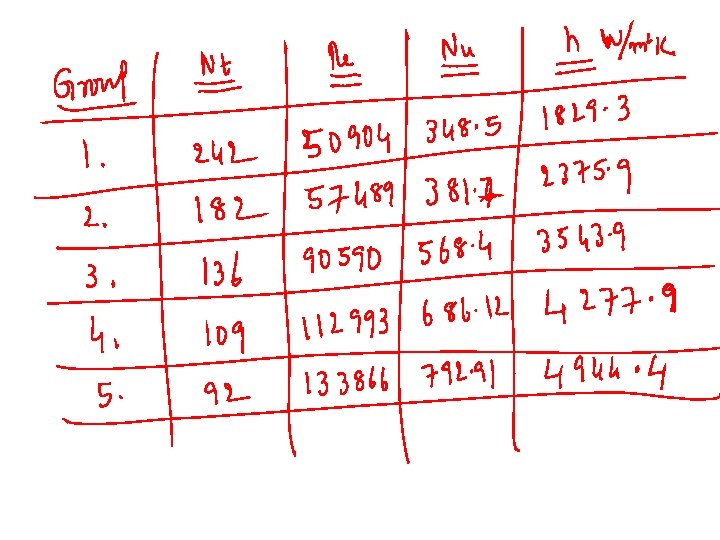 Group Nt Re Nu h W/m²K
1. 242 50904 348.5 1829.3
2. 182 57489 381.7 2375.9
3. 136 90590 568.4 3543.9
4. 109 112993 686.12 4277.9
5. 92 133866 792.91 4944.4